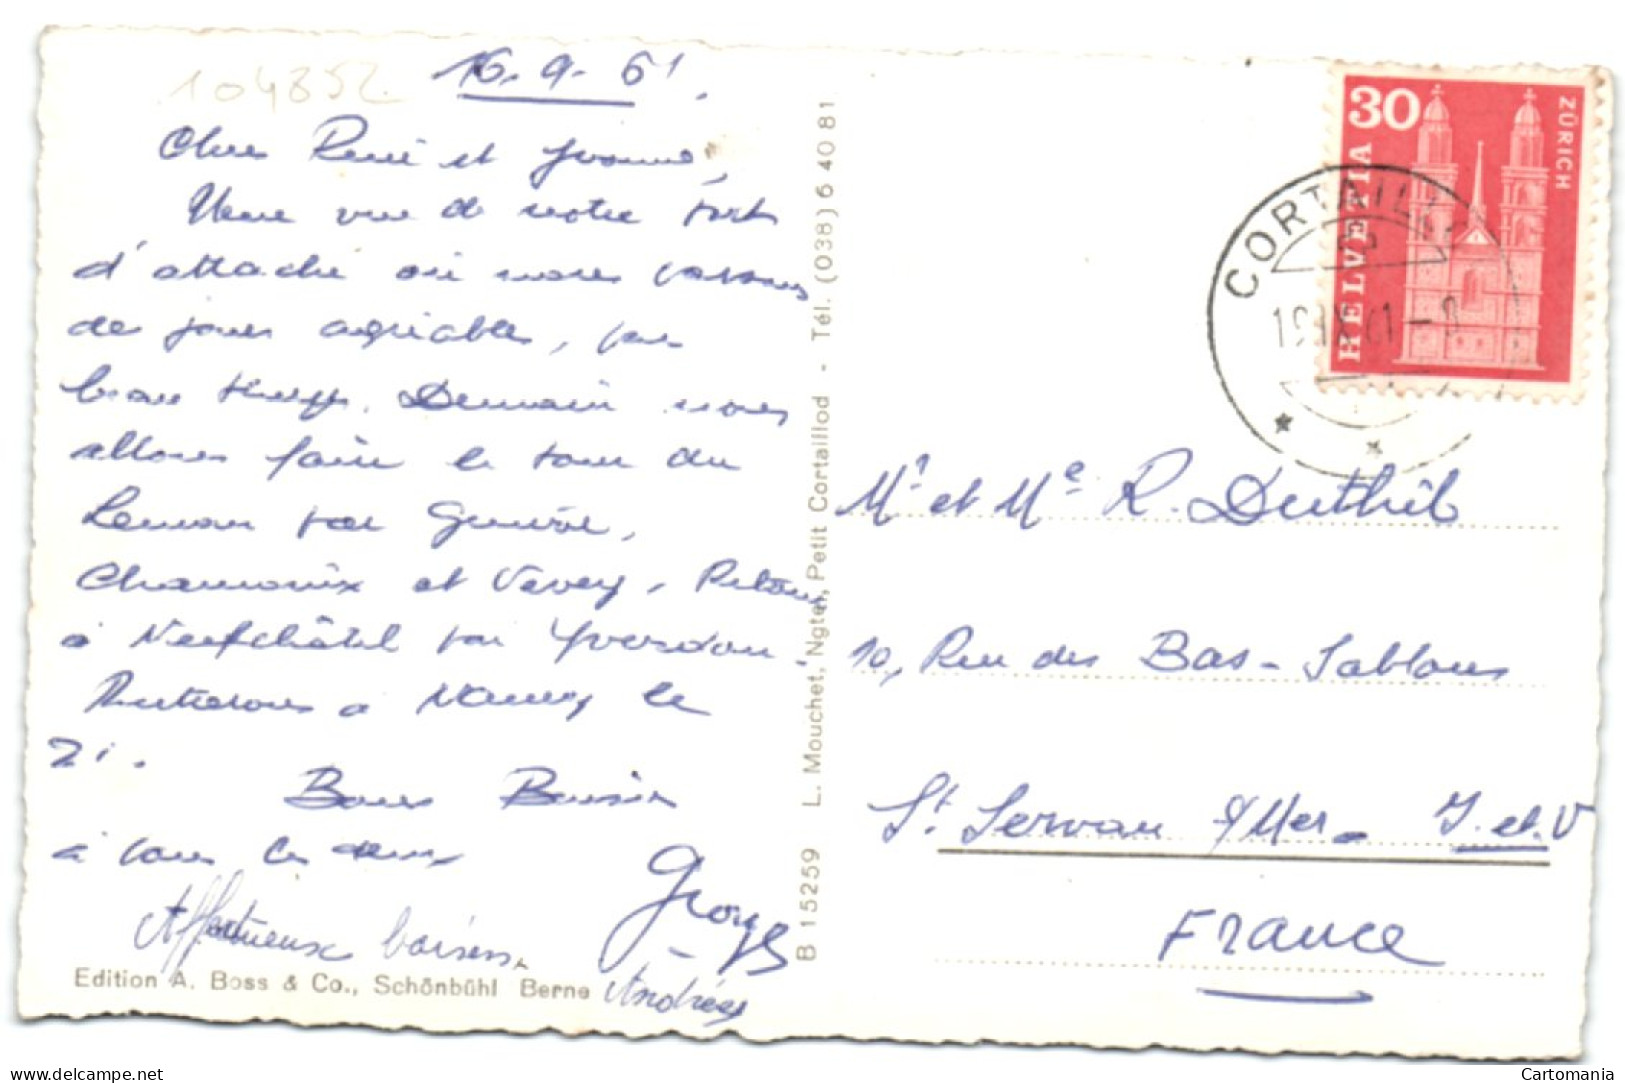 104852
16.9.61.
Chers René et Yvonne,
Une vue de notre port
d'attache où nous passons
de jours agréables, par
beau temps. Demain nous
allons faire le tour du
Leman par Genève,
Chamonix et Vevey, Retour
à Neufchâtel par Yverdon.
Rentrerons à Nancy le
21.
Bons Baisers
à tous les deux
Georges
Affectueux baisers.
Andrée
Edition A. Boss & Co., Schönbühl Berne
B 15259 L. Mouchet, Ngte, Petit Cortaillod - Tél. (038) 6 40 81
30
HELVETIA
ZÜRICH
CORTAILLOD
Mr et Me R. Duthil
10, Rue des Bas-Sablons
St. Servan s/Mer - I. et V
FRANCE
www.delcampe.net
Cartomania